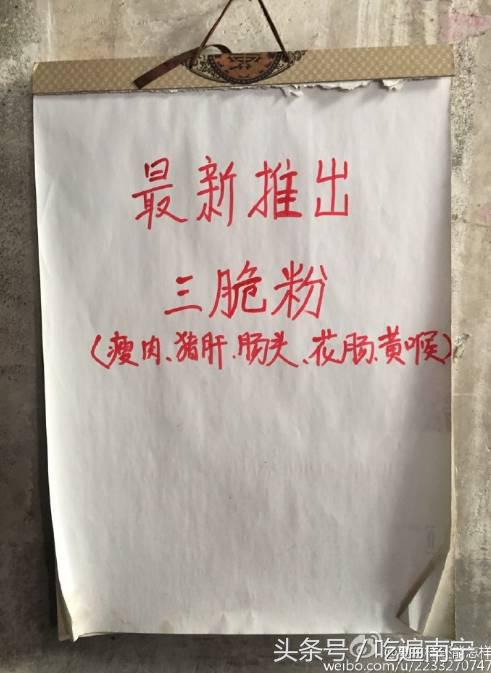 最新推出
三脆粉
(瘦肉、猪肝、肠头、花肠、黄喉)
头条号／吃遍南宁
weibo.com/u/2233270747